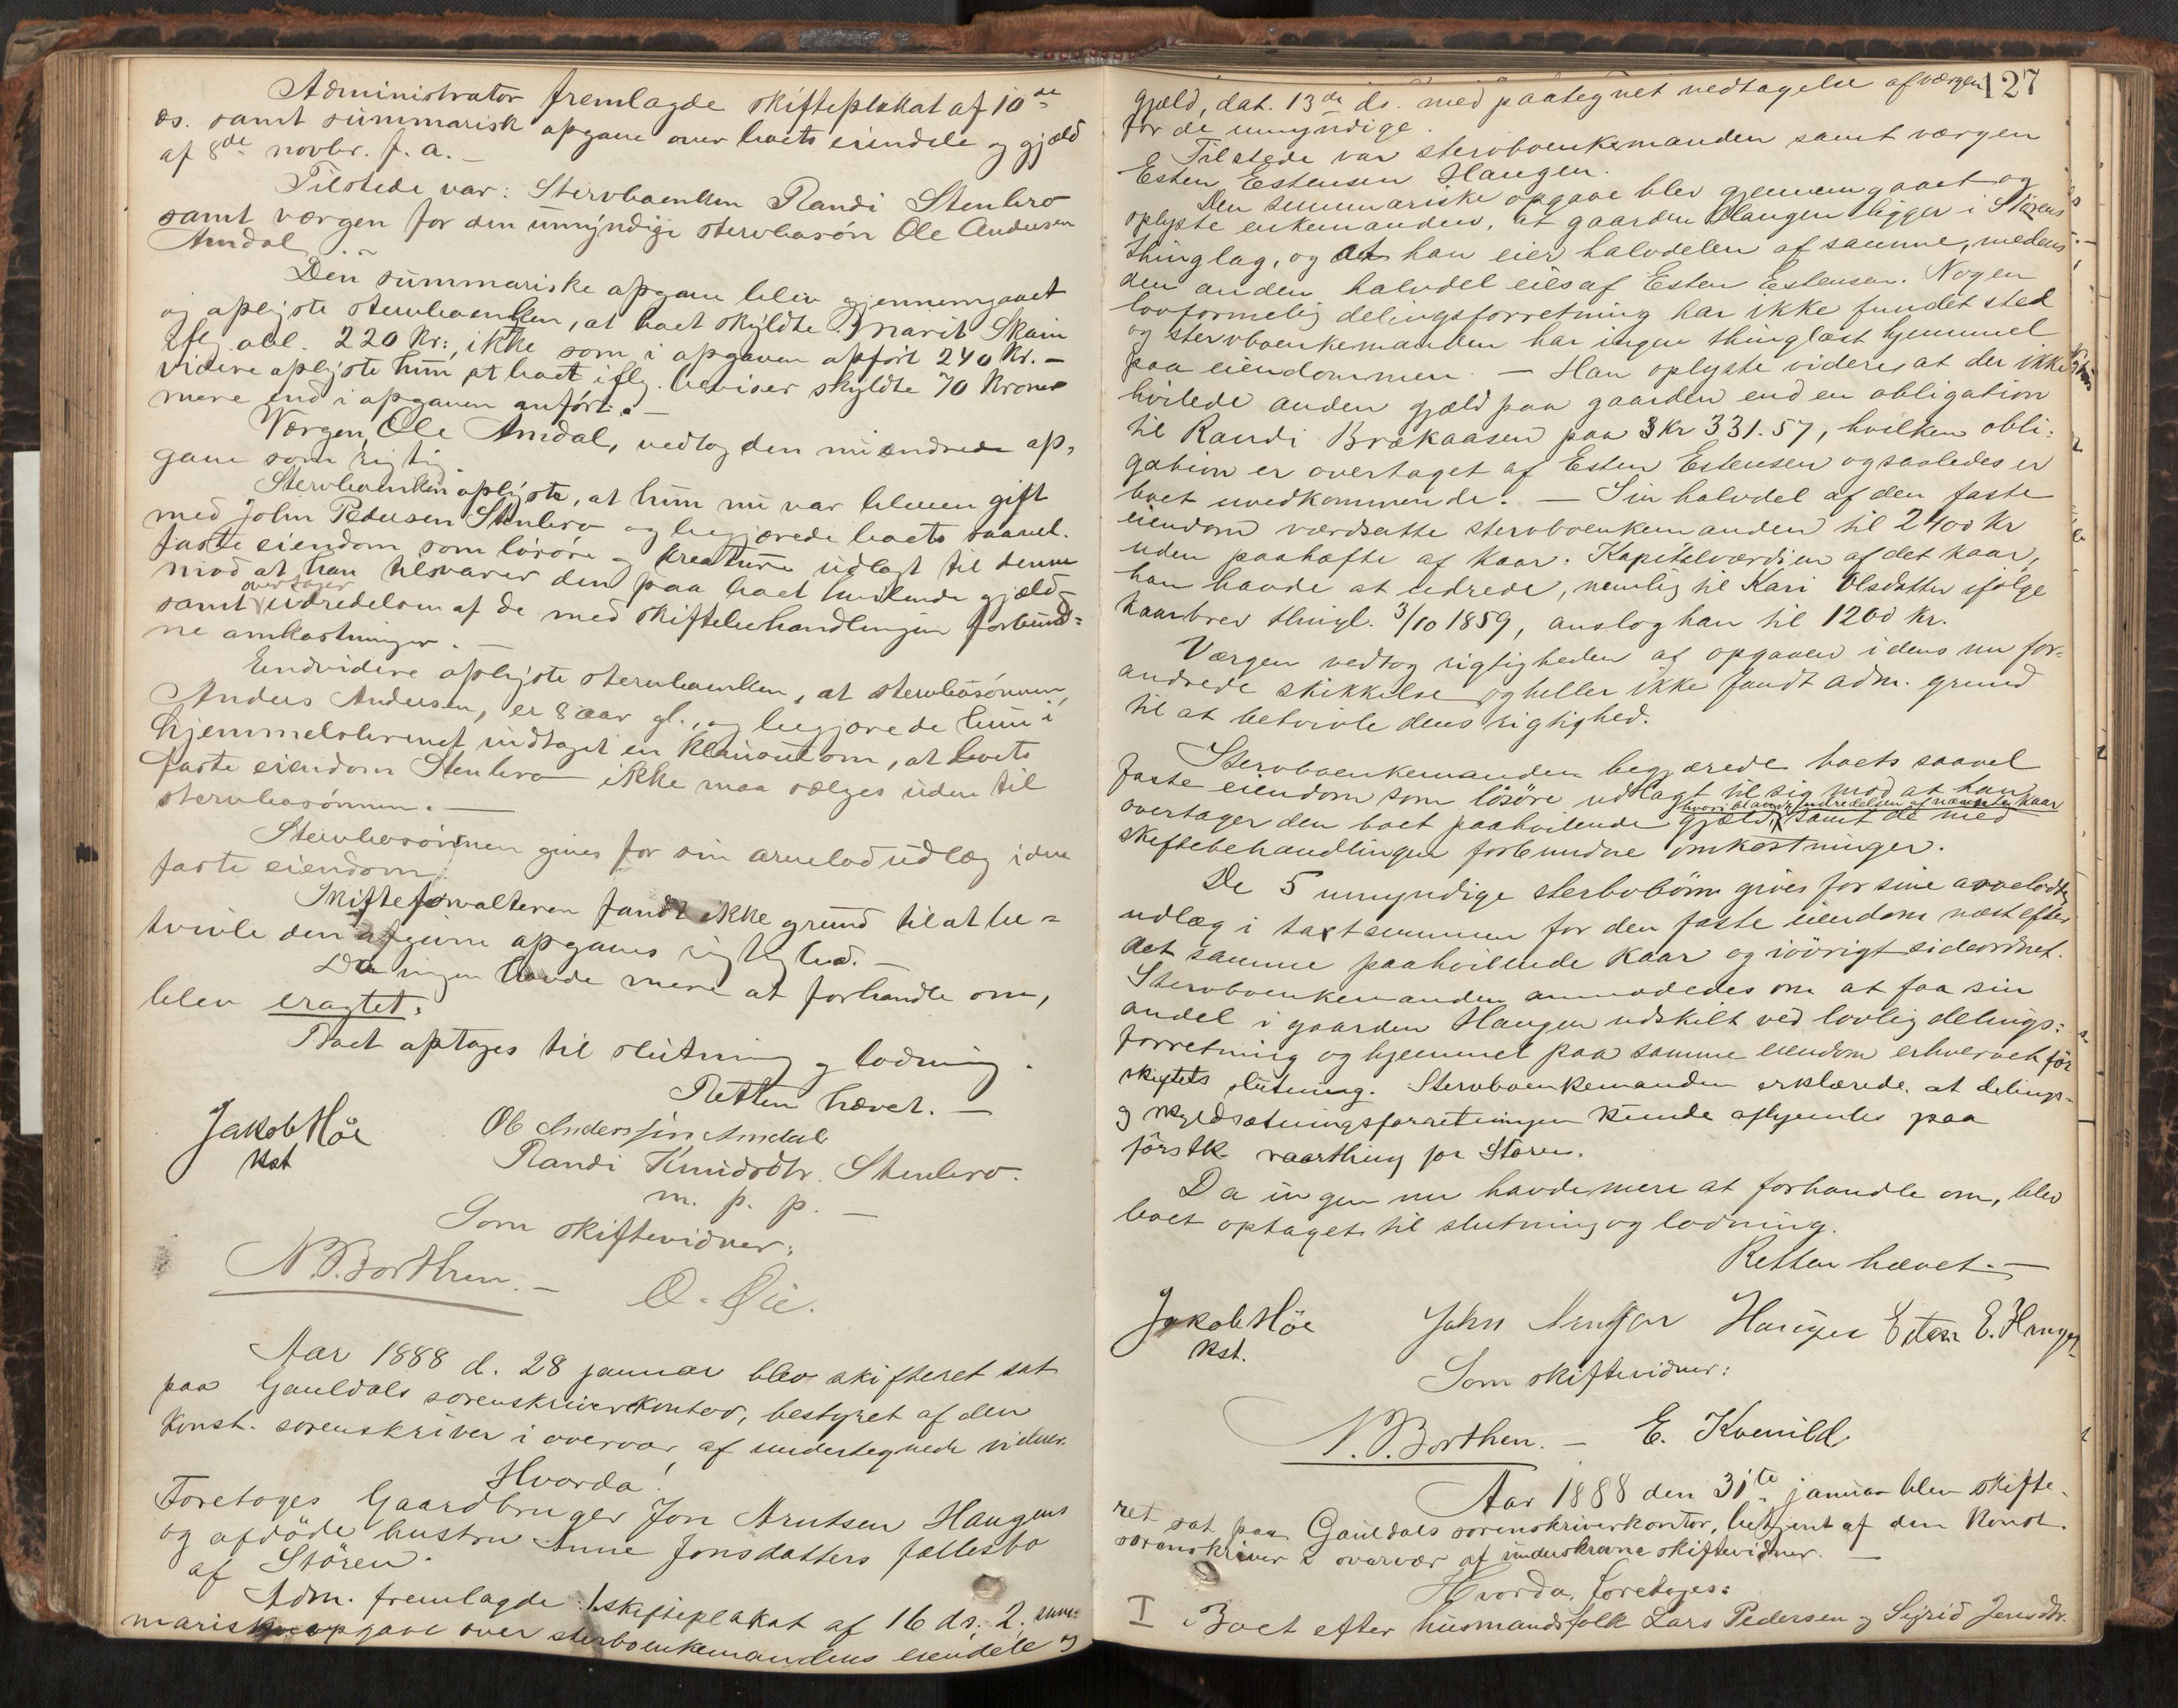 Administrator fremlagde skifteplakat af 10de
ds. samt summarisk opgave over boets eiendele og gjæld
af 8de novbr. f. a. —
Tilstede var: Stervboenken Randi Stenbro
samt værgen for den umyndige stervbosön Ole Andersen
Amdal
Den summariske opgave blev gjennemgaaet
og oplyste stervboenken, at boet skyldte Marit Skain
iflg. obl. 220 Kr:, ikke som i opgaven opfört 240 Kr. —
Videre oplyste hun at boet iflg. beviser skyldte 70 Kroner
mere end i opgaven anført. —
Værgen, Ole Amdal, vedtog den nu ændrede op-
gave som rigtig.
Stervboenken oplyste, at hun nu var bleven gift
med John Pedersen Stenbro og begjærede boets saavel
faste eiendom som lösöre og kreature udlagt til denne
mod at han tilsvarer den paa boet hvilende gjæld
samt overtager udredelsen af de med skiftebehandlingen forbund-
ne omkostninger. —
Endvidere oplyste stervboenken, at stervbosönnen,
Anders Andersen, er 8 aar gl., og begjærede hun i
hjemmelsbrevet indtaget en klausul om, at boets
faste eiendom Stenbro ikke maa sælges uden til
stervbosönnen. —
Stervbosönnen gives for sin arvelod udlæg i den
faste eiendom
Skifteforvalteren fandt ikke grund til at be-
tvivle den afgivne opgaves rigtighed. —
Da ingen havde mere at forhandle om,
blev eragtet:
Boet optages til slutning og lodning.
Retten hævet. —
Jakob Höe
Kst
Ole Anderssen Amdal
Randi Knudsdtr. Stenbro.
m. p. p. —
Som skiftevidner:
N. P. Borthen. —
O. Öie.
Aar 1888 d. 28 januar blev skifteret sat
paa Gauldals sorenskriverkontor, bestyret af den
konst. sorenskriver i overvær af undertegnede vidner.
Hvorda!
Foretoges Gaardbruger Jon Arntsen Haugens
og afdöde hustru Anne Jonsdatters fællesbo
af Stören.
Adm. fremlagde 1. skifteplakat af 16 ds. 2. sum-
marisk opgave over sterboenkemandens eiendele og
127
gjæld, dat. 13de ds. med paategnet vedtagelse af værgen
for de umyndige.
Tilstede var stervboenkemanden samt værgen
Esten Estensen Haugen.
Den summariske opgave blev gjennemgaaet og
oplyste enkemanden, at gaarden Haugen ligger i Störens
thinglag, og at han eier halvdelen af samme, medens
den anden halvdel eies af Esten Estensen. Nogen
lovformelig delingsforretning har ikke fundet sted
og stervboenkemanden har ingen thinglæst hjemmel
paa eiendommen. — Han oplyste videre, at der ikke
hvilede anden gjæld paa gaarden end en obligation
til Randi Brækaasen paa Kr 331.57, hvilken obli-
gation er overtaget af Esten Estensen og saaledes er
boet uvedkommende. — Sin halvdel af den faste
eiendom værdsatte stervboenkemanden til 2400 Kr
uden paahæfte af kaar. Kapitalværdien af det kaar,
han havde at udrede, nemlig til Kari Olsdatter ifölge
kaarbrev thingl. 3/10 1859, anslog han til 1200 Kr.
Værgen vedtog rigtigheden af opgaven i dens nu for-
andrede skikkelse og heller ikke fandt adm. grund
til at betvivle dens rigtighed.
Stervboenkemanden begjærede boets saavel
faste eiendom som lösöre udlagt til sig mod at han
overtager den boet paahvilende gjæld, hvori blandt udredelsen af nævnte kaar samt de med
skiftebehandlingen forbundne omkostninger.
De 5 umyndige sterbobörn gives for sine arvelodde
udlæg i taxtsummen for den faste eiendom næst efter
det samme paahvilende kaar og iövrigt sideordnet.
Stervboenkemanden anmodedes om at faa sin
andel i gaarden Haugen udskilt ved lovlig delings-
forretning og hjemmel paa samme eiendom erhvervet för
skiftets slutning. Stervboenkemanden erklærede, at delings-
og skyldsætningsforretningen kunde afhjemles paa
förstk. vaarthing for Stören.
Da ingen nu havde mere at forhandle om, blev
boet optaget til slutning og lodning.
Retten hævet. —
Jakob Höe
Kst.
John Arntsen Haugen Esten E. Haugen
Som skiftevidner:
N. P. Borthen. — E. Kvenild
Aar 1888 den 31te januar blev skifte-
ret sat paa Gauldals sorenskriverkontor, betjent af den konst.
sorenskriver i overvær af underskrevne skiftevidner. —
Hvorda, foretoges:
I Boet efter husmandsfolk Lars Pedersen og Sigrid Jensdtr.